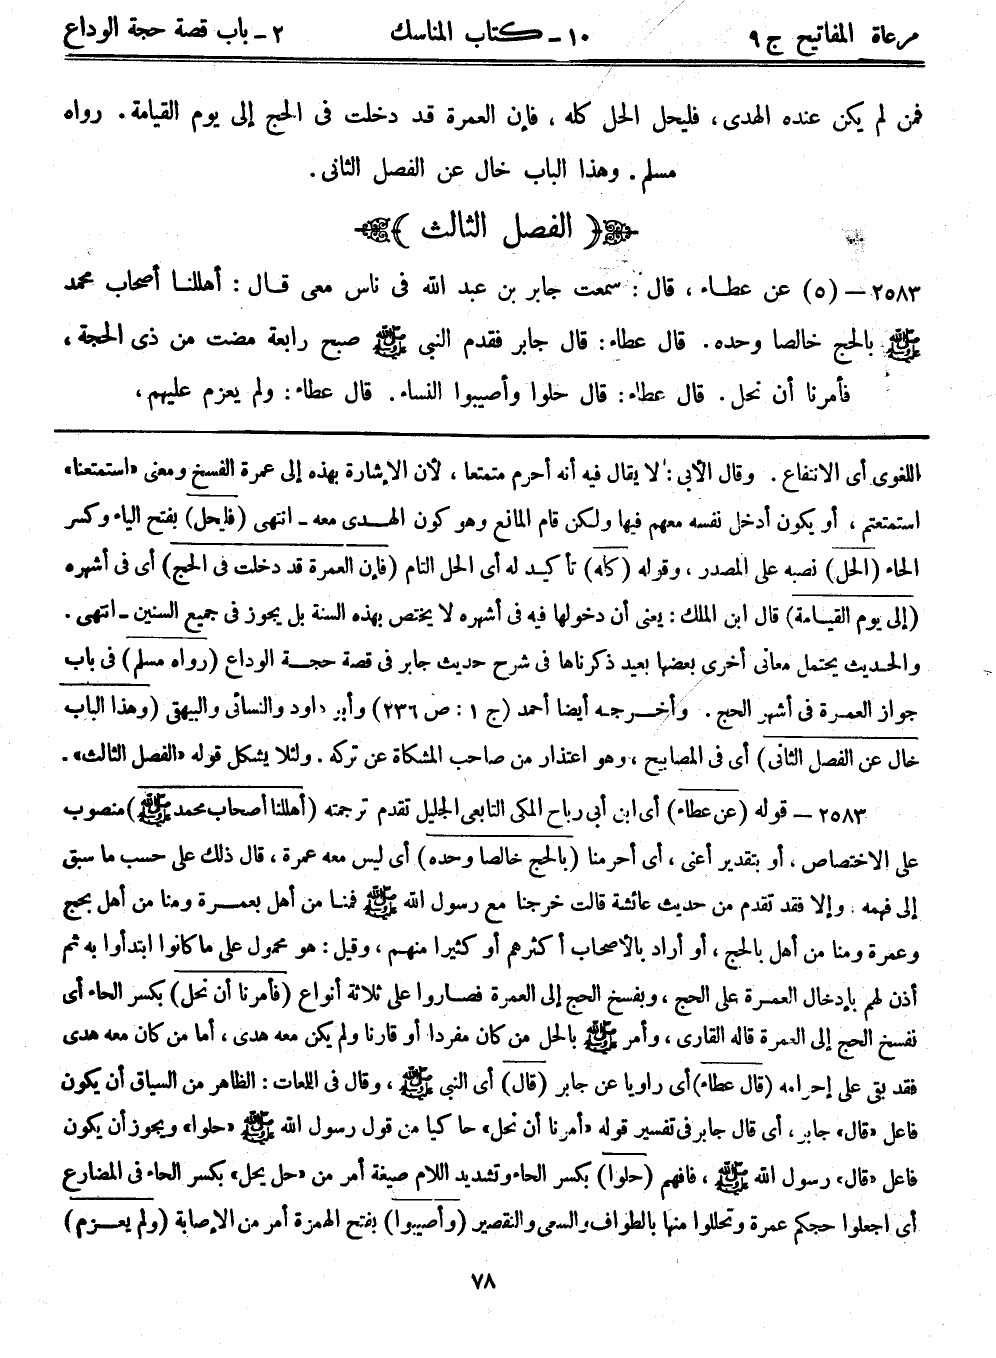 مرعاة المفاتيح ج ٩ ١٠ - كتاب المناسك ٢ - باب قصة حجة الوداع
فمن لم يكن عنده الهدى، فليحل الحل كله، فإن العمرة قد دخلت فى الحج إلى يوم القيامة. رواه
مسلم. وهذا الباب خال عن الفصل الثانى.
﴿ الفصل الثالث ﴾
٢٥٨٣ - (٥) عن عطاء، قال: سمعت جابر بن عبد الله فى ناس معى قال: أهللنا أصحاب محمد
ﷺ بالحج خالصا وحده. قال عطاء: قال جابر فقدم النبى ﷺ صبح رابعة مضت من ذى الحجة،
فأمرنا أن نحل. قال عطاء: قال حلوا وأصيبوا النساء. قال عطاء: ولم يعزم عليهم،
اللغوى أى الانتفاع. وقال الأبى: لا يقال فيه أنه أحرم متمتعا، لأن الإشارة بهذه إلى عمرة الفسخ ومعنى «استمتعنا»
استمتعتم، أو يكون أدخل نفسه معهم فيها ولكن قام المانع وهو كون الهدى معه - انتهى (فليحل) بفتح الياء وكسر
الحاء (الحل) نصبه على المصدر، وقوله (كله) تأكيد له أى الحل التام (فإن العمرة قد دخلت فى الحج) أى فى أشهره
(إلى يوم القيامة) قال ابن الملك: يعنى أن دخولها فيه فى أشهره لا يختص بهذه السنة بل يجوز فى جميع السنين - انتهى.
والحديث يحتمل معانى أخرى بعضها بعيد ذكرناها فى شرح حديث جابر فى قصة حجة الوداع (رواه مسلم) فى باب
جواز العمرة فى أشهر الحج. وأخرجه أيضا أحمد (ج ١: ص ٢٣٦) وأبو داود والنسائى والبيهقى (وهذا الباب
خال عن الفصل الثانى) أى فى المصابيح، وهو اعتذار من صاحب المشكاة عن تركه. ولئلا يشكل قوله «الفصل الثالث».
٢٥٨٣ - قوله (عن عطاء) أى ابن أبى رباح المكى التابعى الجليل تقدم ترجمته (أهللنا أصحاب محمد ﷺ) منصوب
على الاختصاص، أو بتقدير أعنى، أى أحرمنا (بالحج خالصا وحده) أى ليس معه عمرة، قال ذلك على حسب ما سبق
إلى فهمه. وإلا فقد تقدم من حديث عائشة قالت خرجنا مع رسول الله ﷺ فمنا من أهل بعمرة ومنا من أهل بحج
وعمرة ومنا من أهل بالحج، أو أراد بالأصحاب أكثرهم أو كثيرا منهم، وقيل: هو محمول على ما كانوا ابتدأوا به ثم
أذن لهم بإدخال العمرة على الحج، وبفسخ الحج إلى العمرة فصاروا على ثلاثة أنواع (فأمرنا أن نحل) بكسر الحاء أى
نفسخ الحج إلى العمرة قاله القارى، وأمر ﷺ بالحل من كان مفردا أو قارنا ولم يكن معه هدى، أما من كان معه هدى
فقد بقى على إحرامه (قال عطاء) أى راويا عن جابر (قال) أى النبى ﷺ، وقال فى اللعات: الظاهر من السياق أن يكون
فاعل «قال» جابر، أى قال جابر فى تفسير قوله «أمرنا أن نحل» حاكيا من قول رسول الله ﷺ «حلوا» ويجوز أن يكون
فاعل «قال» رسول الله ﷺ، فافهم (حلوا) بكسر الحاء وتشديد اللام صيغة أمر من «حل يحل» بكسر الحاء فى المضارع
أى اجعلوا حجكم عمرة وتحللوا منها بالطواف والسعى والتقصير (وأصيبوا) بفتح الهمزة أمر من الإصابة (ولم يعزم)
٧٨